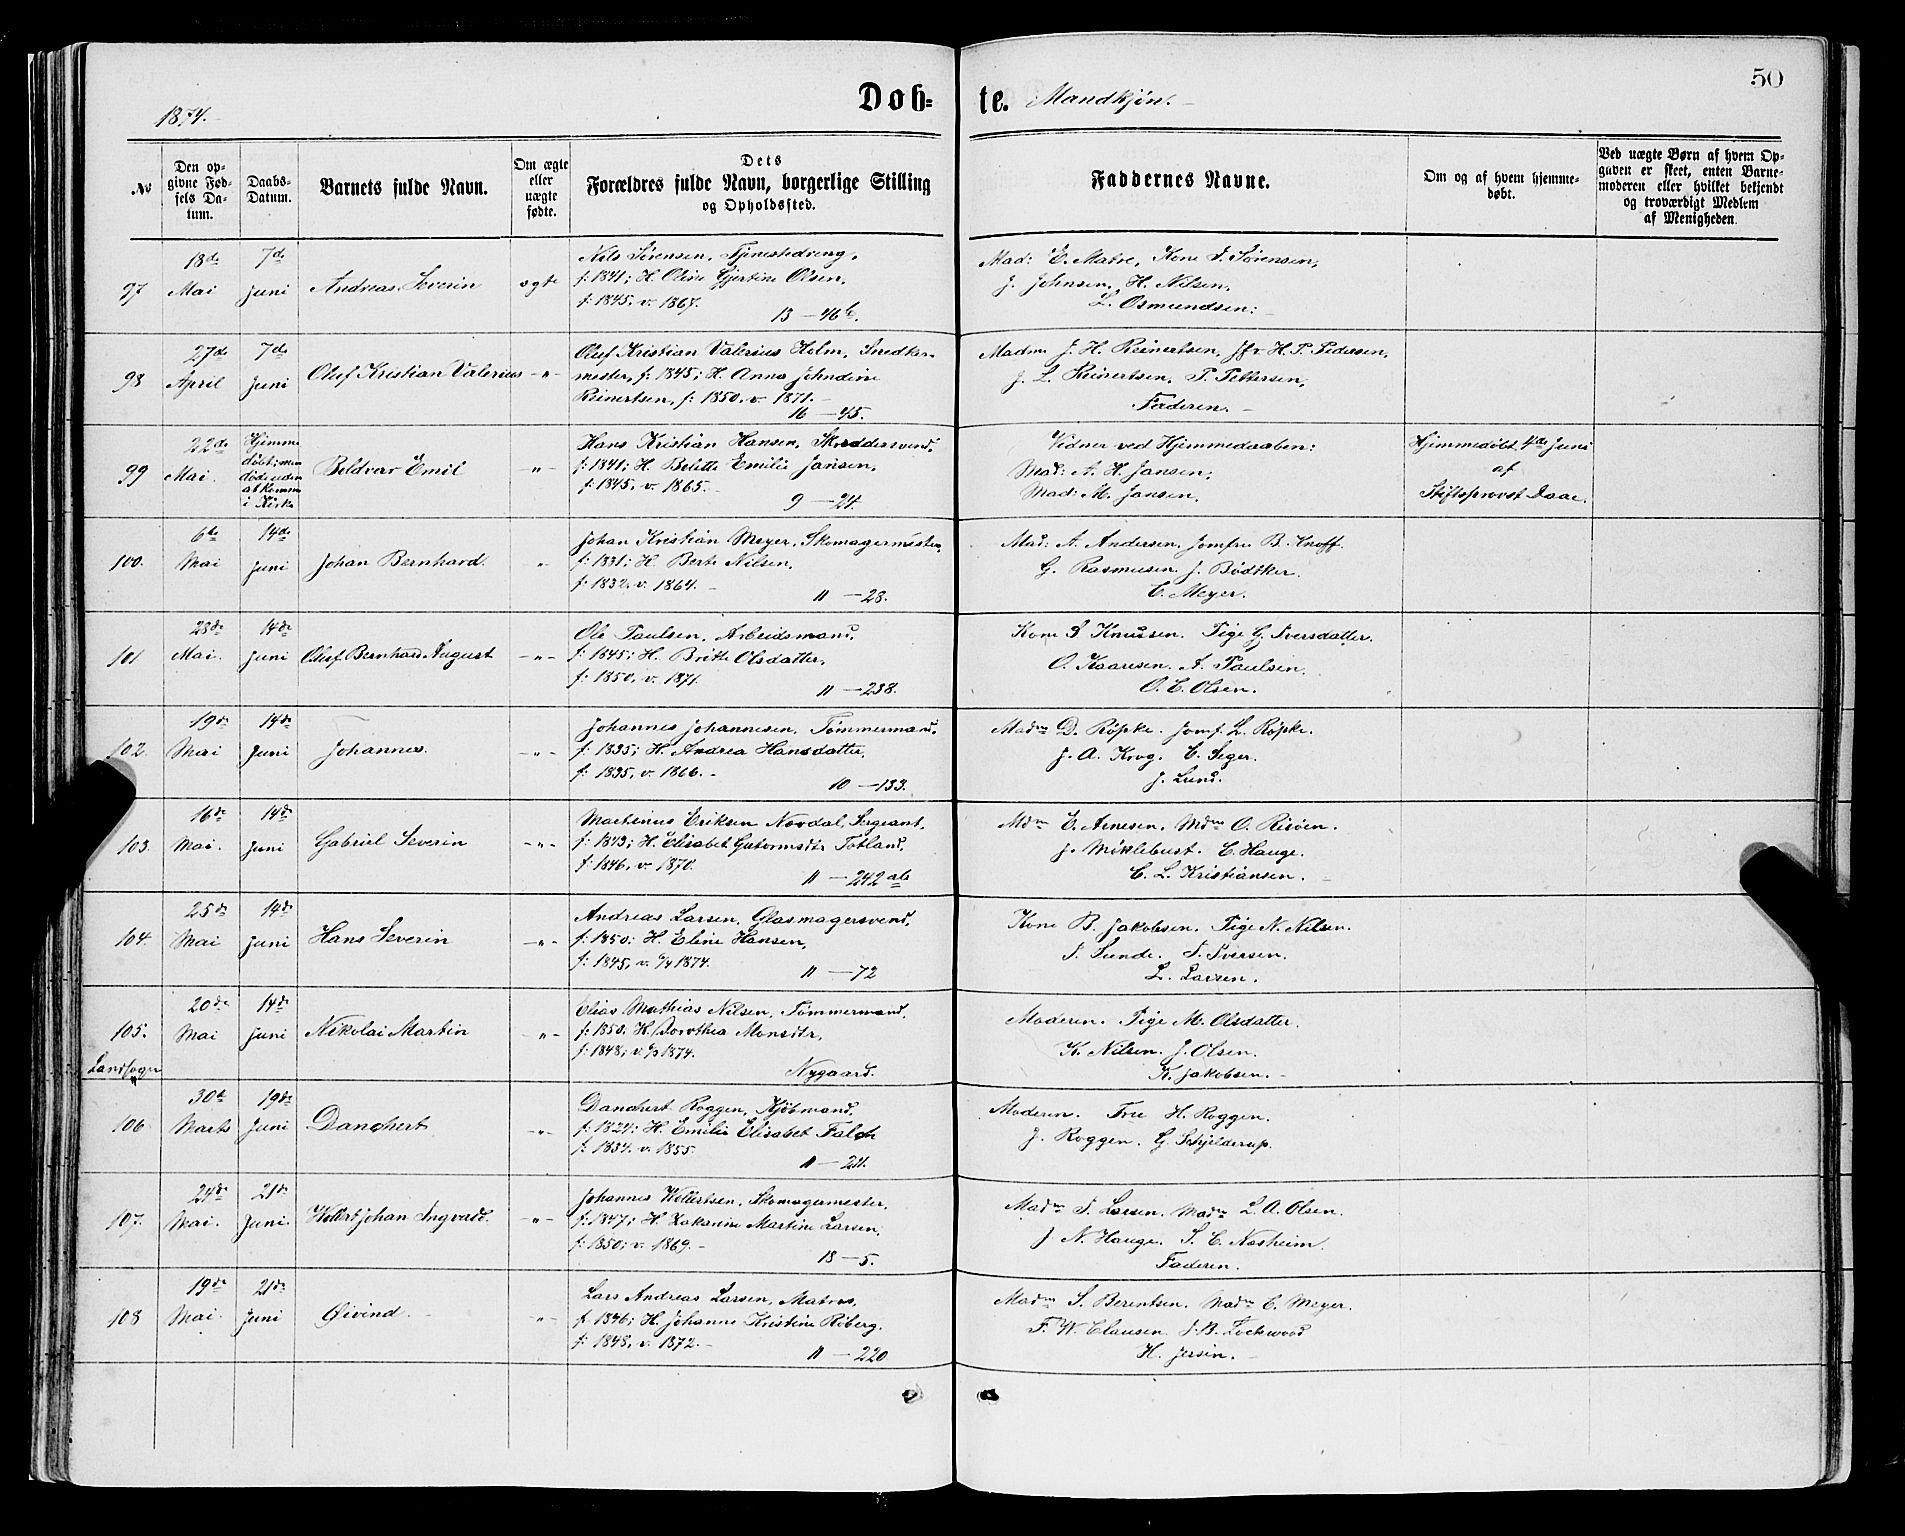 50
1874.
Døb= te. Mandkjøn.
No
Den op-
givne Fød-
sels Da-
tum.
Daabs-
Datum.
Barnets fulde Navn.
Om ægte
eller
uægte
fødte.
Dets
Forældres fulde Navn, borgerlige Stilling
og Opholdssted.
Faddernes Navne.
Om og af hvem hjemme-
døbt.
Ved uægte Børn af hvem Op-
gaven er skeet, enten Barne-
moderen eller hvilket bekjendt
og troværdigt Medlem
af Menigheden.
97
18de
Mai
7de
Juni
Andreas Severin
ægte
Nils Sørensen, Tjenestedreng,
f: 1841; H. Oline Gjertine Olsen,
f: 1845, v. 1867.
13 — 46b.
Mad: E. Matre, Kone S. Sørensen,
J. Johnsen, H. Nilsen,
L. Osmundsen.
98
27de
April
7de
Juni
Oluf Kristian Valerius
-"-
Oluf Kristian Valerius Holm, Snedker-
mester, f: 1845; H. Anna Johndine
Reinertsen, f: 1850, v. 1871.
16 — 45.
Madm J. H. Reinertsen, Jfr H. P. Pedersen,
J. L. Reinertsen, P. Pettersen,
Faderen.
99
22de
Mai.
Hjemme
døbt; men
døde uden
at komme
i Kirke
Boldvar Emil
-"-
Hans Kristian Hansen, Skreddersvend,
f: 1841; H. Bolette Emilie Jansen,
f: 1845, v. 1865.
9 — 24.
Vidner ved Hjemmedaaben:
Mad: A. H. Jansen;
Mad: M. Jansen.
Hjemmedøbt 4de Juni
af
Stiftsprovst Daae.
100.
6te
Mai
14de
Juni
Johan Bernhard.
"
Johan Kristian Meyer, Skomagermester,
f: 1831; H. Berte Nilsen,
f: 1832, v. 1864.
11 — 28.
Mad: A. Andersen. Jomfru B. Knoff.
G. Rasmusen. J. Bødtker.
C. Meyer.
101
28de
Mai.
14de
Juni
Oluf Bernhard August
-"-
Ole Paulsen, Arbeidsmand,
f: 1845; H. Britte Olsdatter,
f: 1850, v. 1871.
11 — 238.
Kone S Knutsen. Pige G. Iversdatter.
O. Kaaresen. A. Paulsen.
O. C. Olsen.
102.
19de
Mai
14de
Juni
Johannes.
-"-
Johannes Johannesen, Tømmermand,
f: 1835; H. Andrea Hansdatter,
f: 1835, v. 1866.
10 — 133.
Madm D. Røpke. Jomf. L. Røpke.
J. A. Krog. C. Seger.
J. Lund.
103.
16de
Mai.
14de
Juni
Gabriel Severin
-"-
Martinus Eriksen Nordal, Sergeant,
f: 1843; H. Elisabet Gutormsdtr Totland,
f: 1846, v. 1870.
11 — 242 ab
Mdm E. Arnesen. Mdm O. Risøen.
J. Miklebust. C. Hauge.
C. L. Kristiansen.
104.
25de
Mai
14de
Juni
Hans Severin
-"-
Andreas Larsen, Glasmagersvend,
f: 1850; H. Eline Hansen,
f: 1845, v. 6/4 1874.
11 — 72
Kone B. Jakobsen. Pige N. Nilsen.
S. Sunde. S. Iversen.
L. Larsen.
105.
Landsogn
20de
Mai
14de
Juni
Nikolai Martin
-"-
Elias Mathias Nilsen, Tømmermand,
f: 1850; H. Dorothea Monsdtr,
f: 1848; v. 1874.
Nygaard.
Moderen. Pige M. Olsdatter.
K. Nilsen. J. Olsen.
K. Jakobsen.
106
30te
Marts
19de
Juni
Danchert
-"-
Danchert Roggen, Kjøbmand,
f: 1824; H. Emilie Elisabet Falch
f: 1834. v. 1855.
11 — 21.
Moderen. Frue H. Roggen.
J. Roggen. G. Schjelderup.
107.
24de
Mai.
21de
Juni.
Kollert Johan Ingvald.
-"-
Johannes Kollertsen, Skomagermester,
f: 1847; H. Zakarine Martine Larsen,
f: 1850; v. 1869.
18 — 5.
Madm S. Larsen. Madm L. A. Olsen.
J. N. Hauge. S. C. Næsheim.
Faderen.
108
19de
Mai.
21de
Juni
Øivind.
"
Lars Andreas Larsen, Matros,
f: 1846; H. Johanne Kristine Røberg.
f: 1848, v. 1872.
11 — 220
Madm S. Berentsen. Madm C. Meyer.
F. W. Clausen. S. B. Lockwood
H. Jersin.